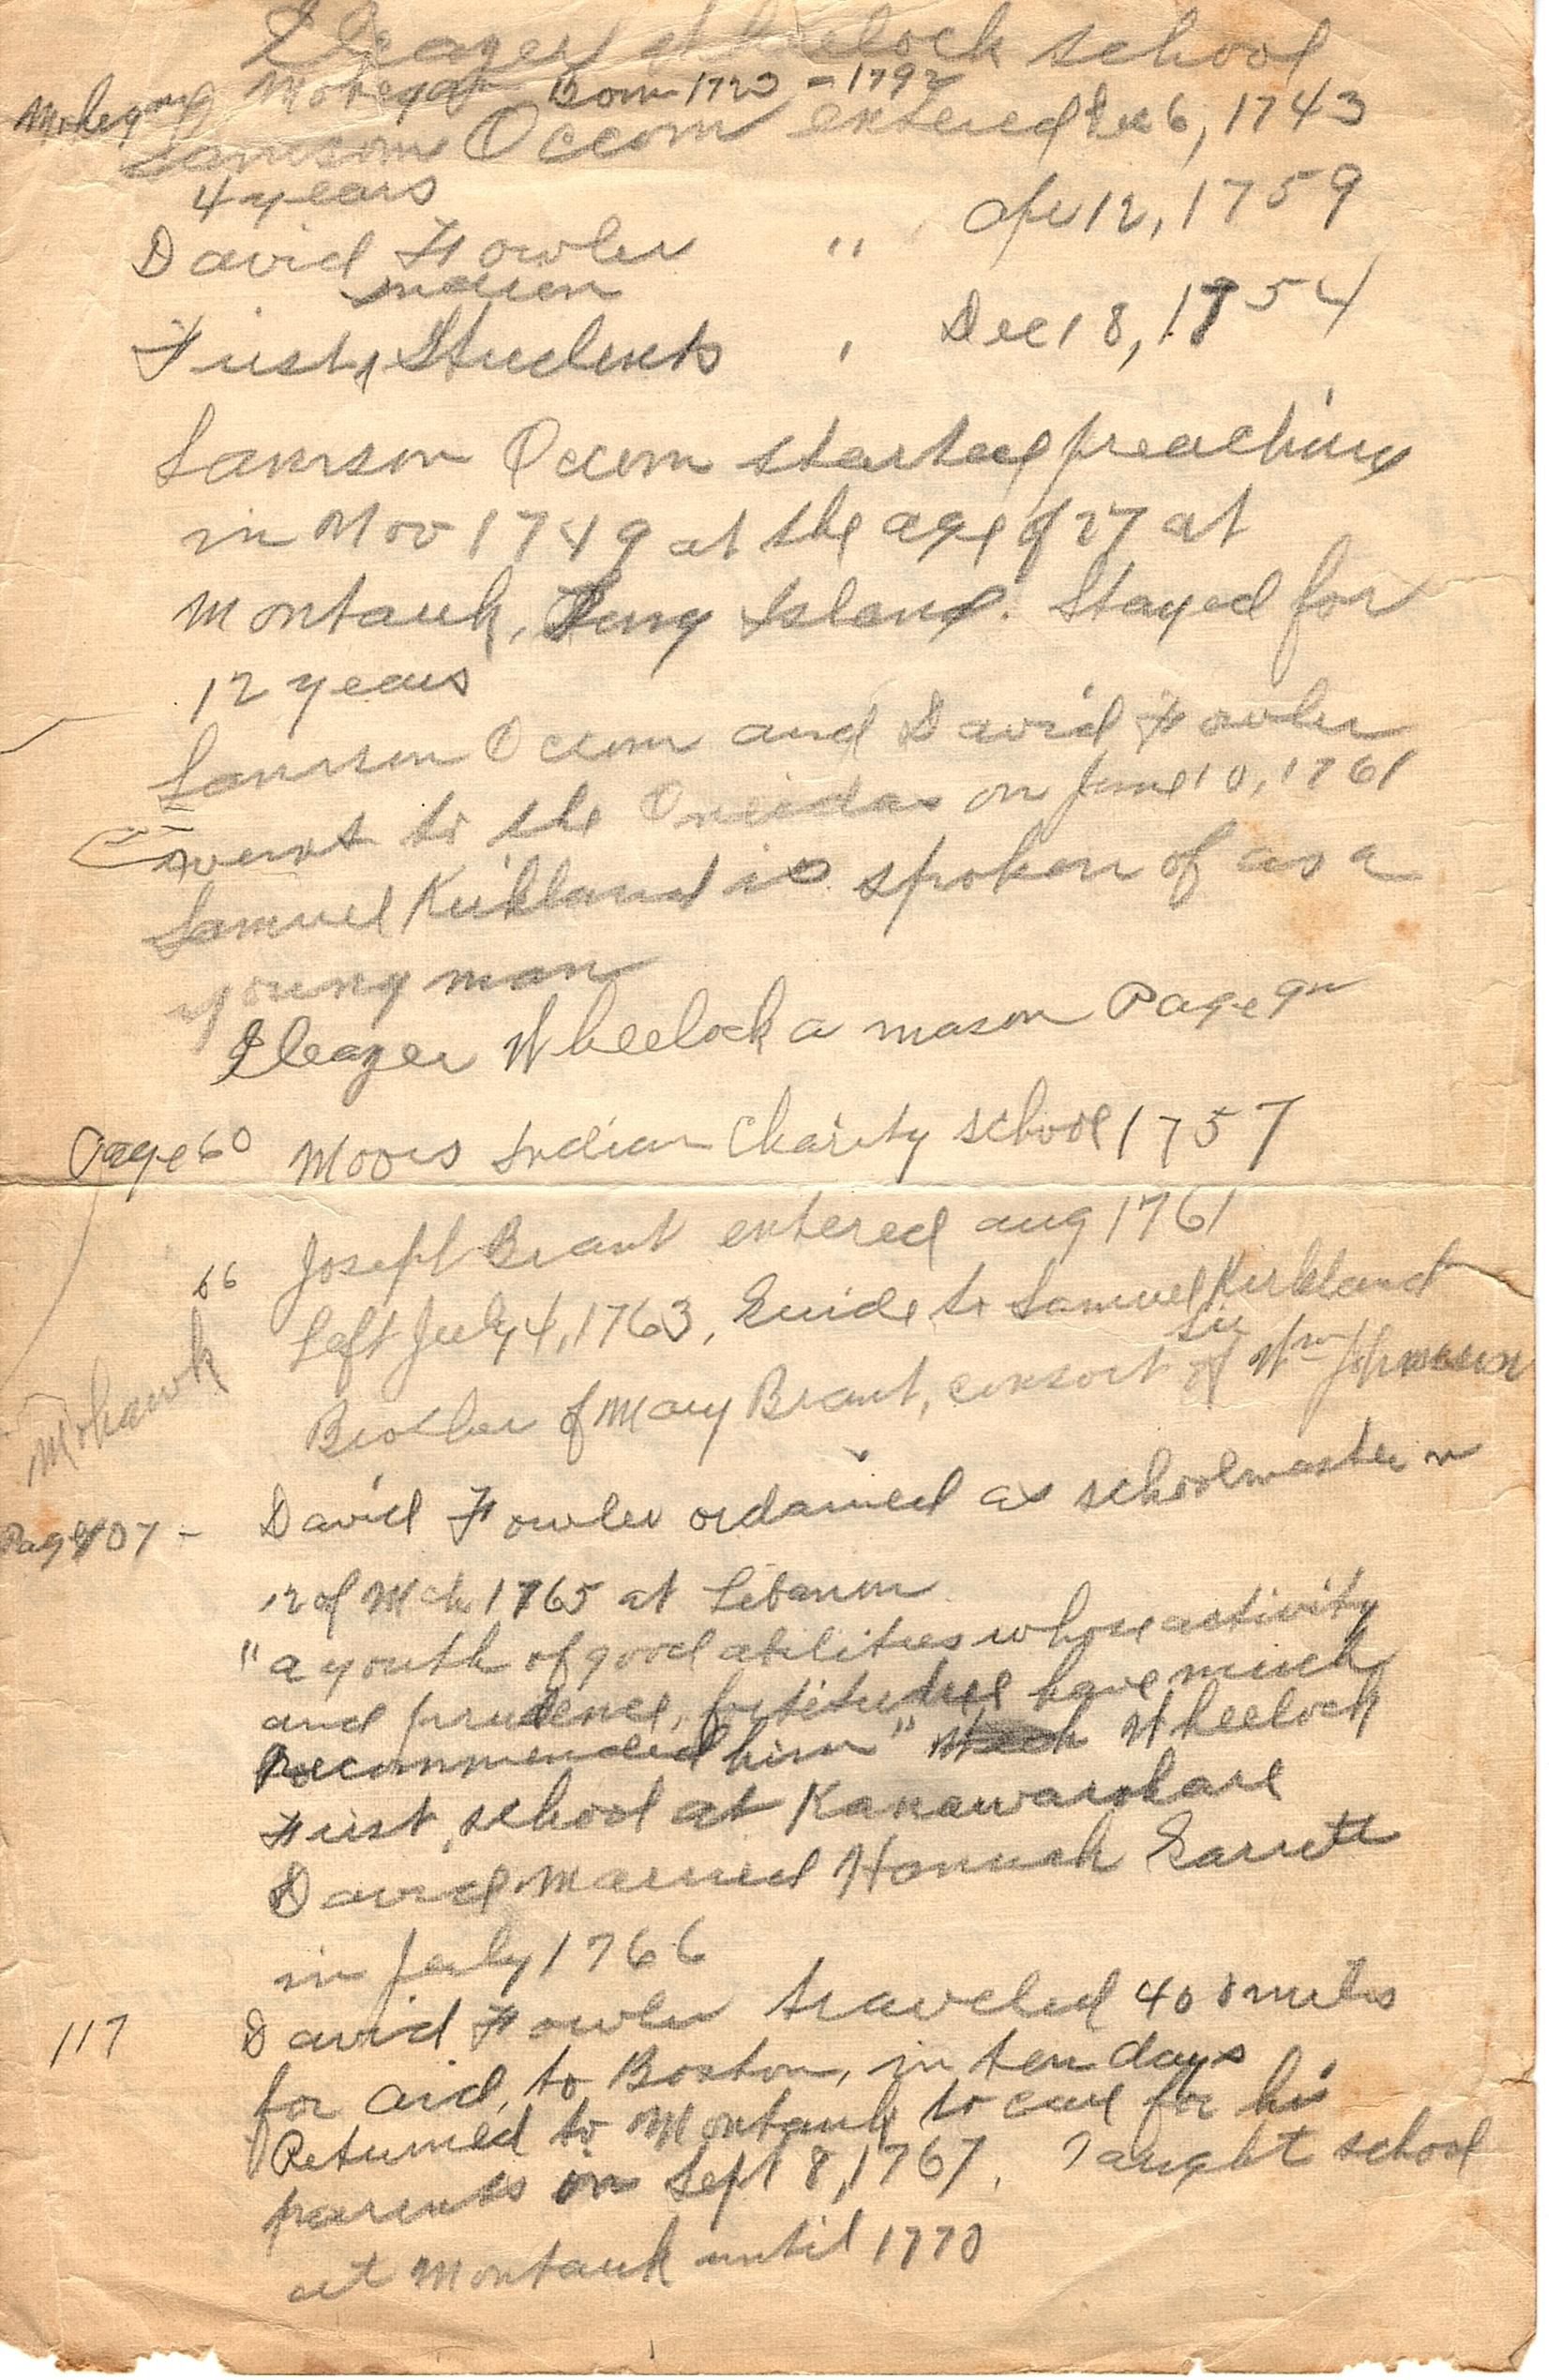 Eleazer Wheelock school
Mohegan Mohegan Born 1723 - 1792
Samson Occom entered Dec 6, 1743
4 years
David Fowler " Apr 12, 1759
Indian
First Students , Dec 18, 1754
Samson Occom started preaching
in Nov 1749 at the age of 27 at
Montauk, Long Island. Stayed for
12 years
Samson Occom and David Fowler
went to the Oneidas on June 10, 1761
Samuel Kirkland is spoken of as a
young man
Eleazer Wheelock a mason Page
Page 60 Moors Indian Charity school 1757
66 Joseph Brant entered aug 1761
Left July 4, 1763, Guide to Samuel Kirkland
Mohawk
Sir
Brother of Mary Brant, consort of Wm Johnson
Page 107 - David Fowler ordained as schoolmaster on
12 of Mch 1765 at Lebanon
"a youth of good abilities whose activity
and prudence, fortitude have much
Recommended him" Wheelock
First, school at Kanawarohare
David married Hannah Garrett
in July 1766
117 David Fowler traveled 400 miles
for aid, to Boston, in ten days
Returned to Montauk to care for his
parents on Sept 8, 1767. Taught school
at Montauk until 1770